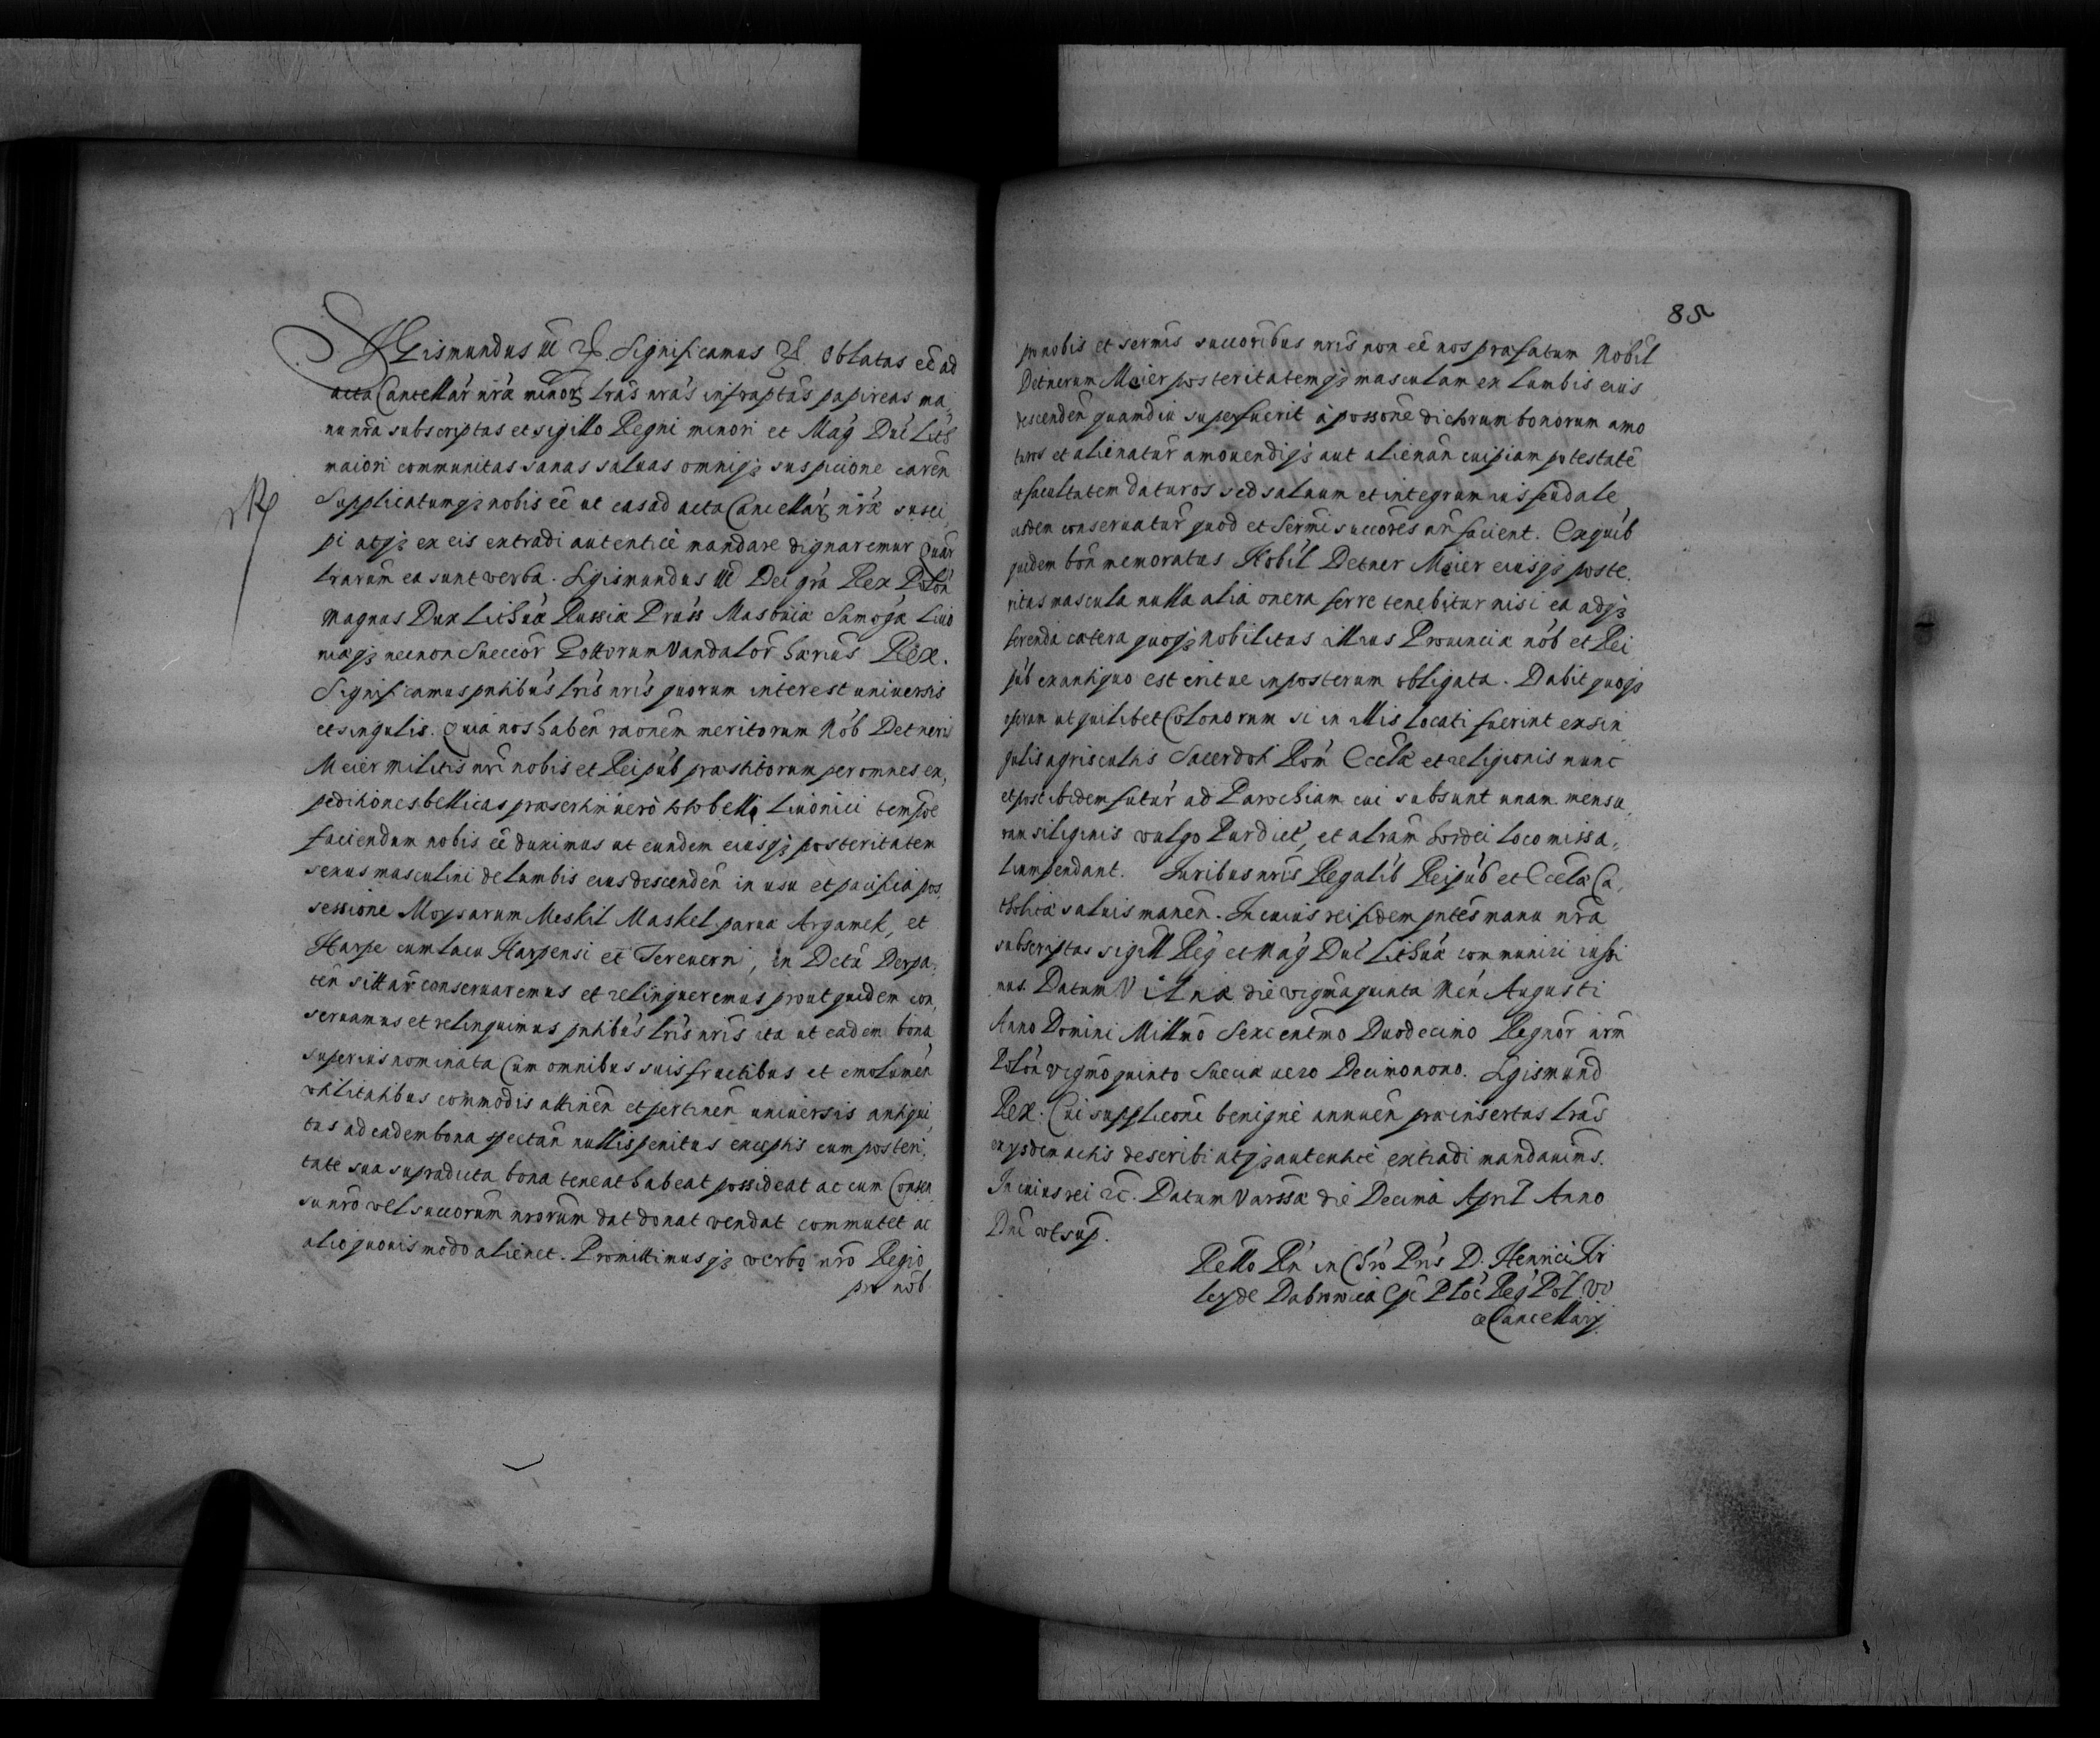 SGismundus III etc. Significamus etc. Oblatas eē ad
acta Cancellar nrae minor lras nras infraptas papireas ma,
nu nra subscriptas et sigillo Regni minori et Mag Duc Lith
maiori communitas sanas saluas omniqz suspicione caren
Supplicatumqz nobis eē ut eas ad acta Cancellar nrae susci,
pi atqz ex eis extradi autentice mandare dignaremur Quar
lrarum ea sunt verba. Sgismundus III Dei gra Rex Polon
Magnus Dux Lithuae Russiae Pruss Masouiae Samogae Liuo
niaeqz necnon Sueccor Gottorum Vandalor haerius Rex.
Significamus pntibus lris nris quorum interest universis
et singulis. Quia nos haben raonem meritorum Nob Detneri
Meier militis nri nobis et Reipub praestitorum per omnes ex,
peditiones bellicas praesertim uero toto belli Liuonici tempore
faciendum nobis eē duximus ut eundem eiusqz posteritatem
sexus masculini de lumbis eius descenden in usu et pacifica pos,
sessione Moysarum Meskil Maskel parua Argamek, et
Harpe cum lacu Harpensi et Tereuerni, in Dctu Derpa,
ten sittar conseruaremus et relinqueremus prout quidem con,
seruamus et relinquimus pntibus lris nris ita ut eadem bona
superius nominata Cum omnibus suis fructibus et emolumen
vtilitatibus commodis attinen et pertinen universis antiqui,
tus ad eadem bona spectan nullis penitus exceptis cum posteri,
tate sua supradicta bona teneat habeat possideat ac cum Consen
su nro vel succorum nrorum dat donat vendat commutet ac
alio quouis modo alienet. Promittimusqz verbo nro Regio
pro nob
85
pro nobis et sermis succoribus nris non eē nos praefatum Nobil
Detnerum Meier posteritatemqz masculam ex lumbis eius
descenden quamdiu superfuerit à possone dictorum bonorum amo
turos et alienatur amouendiqz aut alienan cuipiam potestatē
et facultatem daturos sed saluum et integrum ius feudale
eisdem conseruatur quod et Sermi succores nri facient. Ex quib
quidem bon memoratus Nobil Detner Meier eiusqz poste,
ritas mascula nulla alia onera ferre tenebitur nisi ea adqz
ferenda caetera quoqz Nobilitas illius Prouinciae nob et Rei
pub ex antiquo est eritue in posterum obligata. Dabit quoqz
operam ut quilibet Colonorum si in illis locati fuerint ex sin
gulis agris cultis Sacerdoti Rom Ecclae et religionis nunc
et post ibidem futur ad Parochiam cui subsunt unam mensu,
ram siliginis vulgo Purdiet, et alram hordei loco missa,
lium pendant. Iuribus nris Regalib Reipub et Ecclae Ca,
tholicae saluis manen. In cuius rei fidem pntes manu nra
subscriptas sigill Reg et Mag Duc Lithuae communiri iussi
mus. Datum Vilnae die vigma quinta Men Augusti
Anno Domini Millmo Sexcentmo Duodecimo Regnor nrm
Polon vigmo quinto Sueciae uero Decimonono. Sgismund
Rex. Cui supplicone benigne annuen prae insertas lras
ex ysdem actis describi atqz autentice extradi mandauims.
In cuius rei etc. Datum Varssae die Decima April Anno
Dni vt sup.
Rello Rn in Chro Pris D. Henrici Fir
ley de Dabrowica Epi Ploc Reg Pol Vi
ceCancellarij